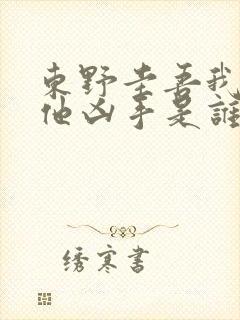 東野圭吾我
他凶手是誰
绣寒書